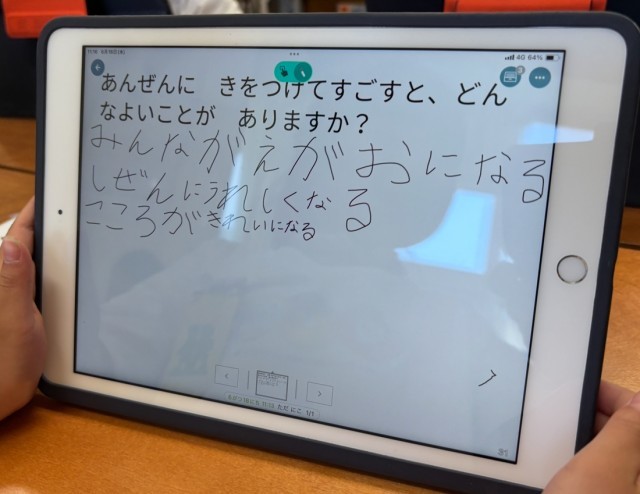 4G 64%
あんぜんに　きをつけてすごすと、どん
なよいことが　ありますか？
みんながえがおになる
しぜんにうれしくなる
こころがきれいになる
1/1